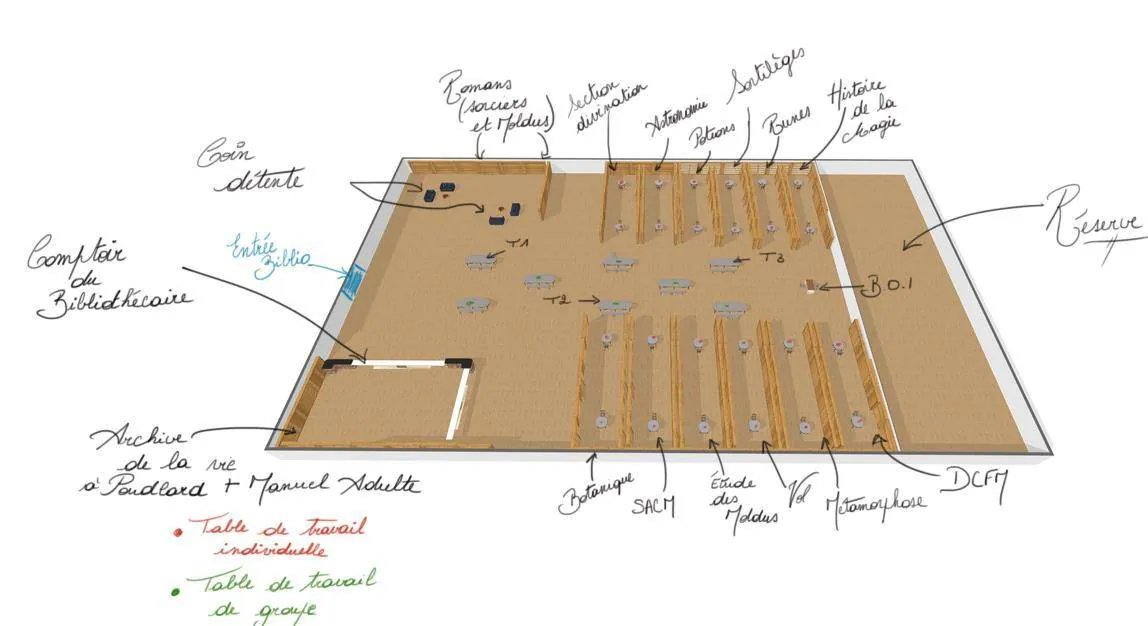 Romans
(sorciers
et Moldus)
Section
divination
Astronomie
Potions
Sortilèges
Runes
Histoire
de la
Magie
Coin
détente
Réserve
Comptoir
du
Bibliothécaire
Entrée
Biblio
T1
T2
T3
B.O.1
Archive
de la vie
à Poudlard + Manuel Adulte
Botanique
SACM
Étude
des
Moldus
Vol
Métamorphose
DCFM
Table de travail
individuelle
Table de travail
de groupe